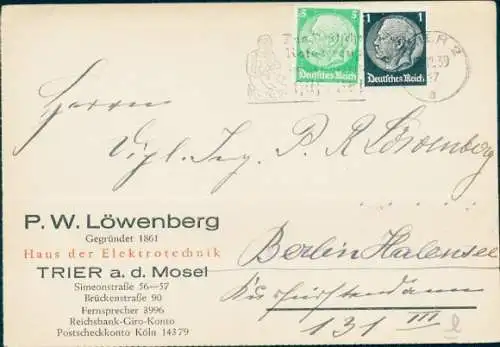 5
Deutsches Reich
1
Deutsches Reich
TRIER 2
Herrn
Ing. P. R. Löwenberg
P. W. Löwenberg
Gegründet 1861
Haus der Elektrotechnik
TRIER a. d. Mosel
Simeonstraße 56—57
Brückenstraße 90
Fernsprecher 3996
Reichsbank-Giro-Konto
Postscheckkonto Köln 14379
Berlin Halensee
Kurfürstendamm
131 III